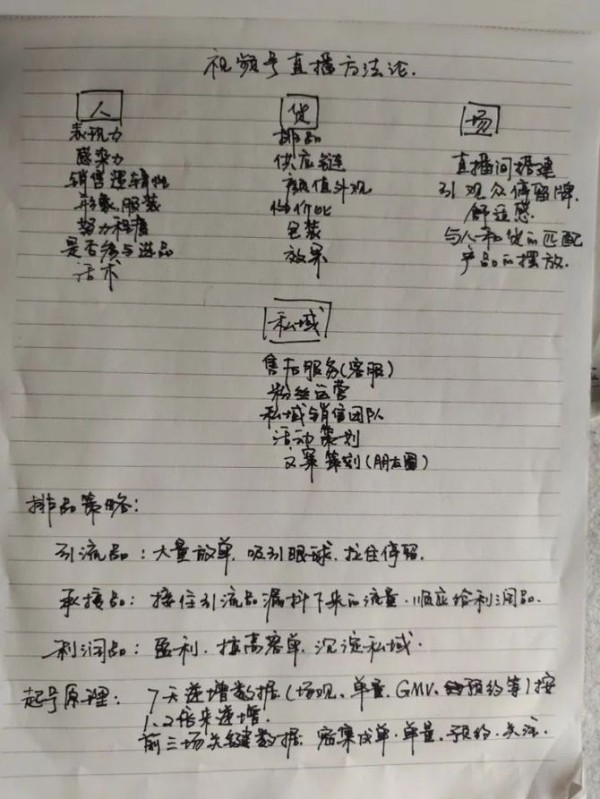 视频号直播方法论.
人
表现力
感染力
销售逻辑性
形象.服装
努力程度
是否参与选品
话术
货
排品
供应链
颜值外观
性价比
包装
效果
场
直播间搭建
引观众停留牌.
舒适感.
与人和货的匹配
产品的摆放.
私域
售后服务(客服)
粉丝运营
私域销售团队
活动策划
文案策划(朋友圈)
排品策略:
引流品:大量放单,吸引眼球,拉住停留.
承接品:接住引流品漏抖下来的流量.顺应给利润品.
利润品:盈利.拔高客单.沉淀私域.
起号原理: 7天递增数据(场观、单量、GMV、预约等)按
1.2倍来递增.
前三场关键数据:密集成单.单量.预约.关注.